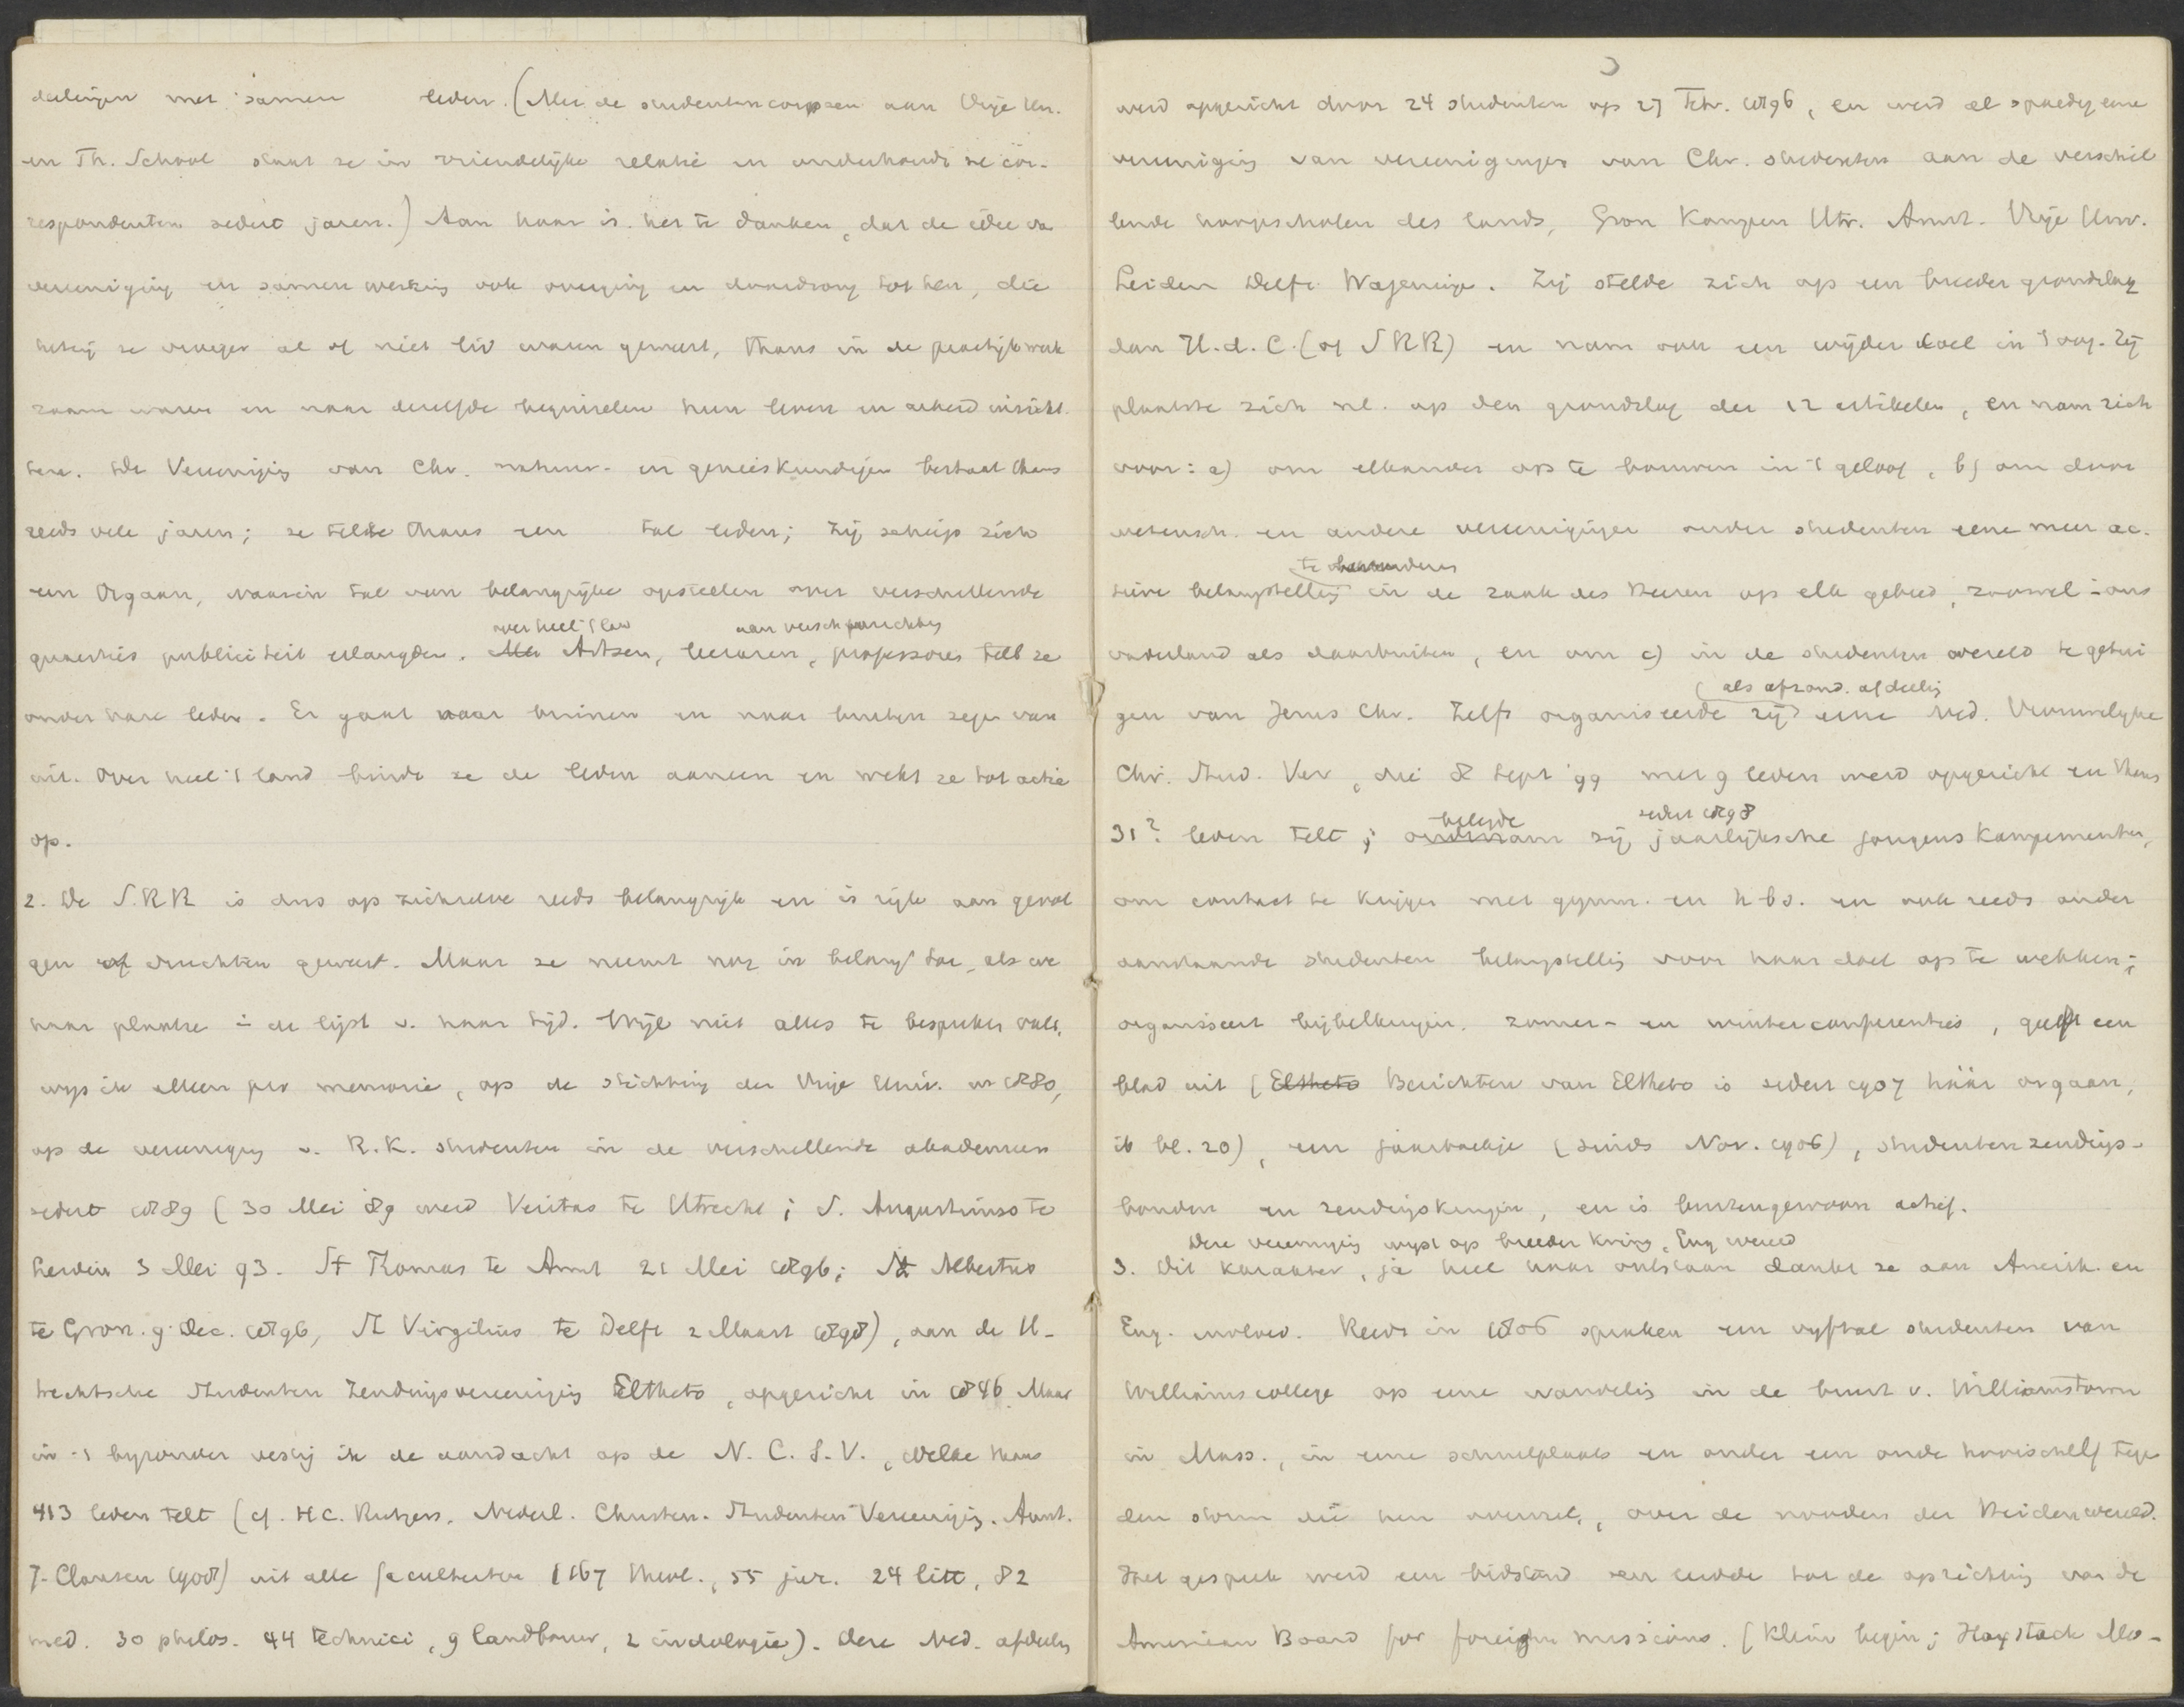 deelingen met samen leden. (Met de studentencorpsen aan Vrije Un.
en Th. School staat ze in vriendelijke relatie en onderhoudt ze cor-
respondentem sedert jaren.) Aan haar is het te danken, dat de idee van
vereeniging en samenwerking ook overging en doordrong tot hen, die
hetzij ze vroeger al of niet lid waren geweest, thans in de practijk werk
zaam waren en naar dezelfde beginselen hun leven en arbeid inricht
ten. De Vereeniging van Chr. natuur- en geneeskundigen bestaat thans
reeds vele jaren; ze telde thans een tal leden; zij schiep zich
een Orgaan, waarin tal van belangrijke opstellen over verschillende
over heel 't land aan versch. inrichting
quaesties publiciteit erlangden. Artsen, leeraren, professores telt ze
onder hare leden. Er gaat naar binnen en naar buiten zegen van
uit. Over heel 't land bindt ze de leden aaneen en wekt ze tot actie
op.
2. De S.R.R. is dus op zichzelve reeds belangrijk en is rijk aan gevol
gen of vruchten geweest. Maar ze neemt nog in belang toe, als we
haar plaatse in de lijst v. haar tijd. Wijl niet alles te bespreken valt,
wijs ik alleen pro memorie, op de stichting der Vrije Univ. in 1880,
op de vereeniging v. R.K. studenten in de verschillende akademien
sedert 1889 (30 Mei 89 werd Veritas te Utrecht; S. Augustinus te
Leiden 3 Mei 93. St Thomas te Amst 21 Mei 1896; St Albertus
te Gron. 9 Dec. 1896, St Virgilius te Delft 2 Maart 1898), aan de U-
trechtsche Studenten Zendingsvereeniging Eltheto, opgericht in 1846. Maar
in 't byzonder vestig ik de aandacht op de N. C. S. V., welke thans
413 leden telt (cf. H.C. Rutgers, Nederl. Christen-Studenten Vereeniging. Amst.
J. Clausen 1908) uit alle faculteiten (167 theol., 55 jur. 24 litt, 82
med. 30 philos. 44 technici, 9 landbouw, 2 indologie). Deze Ned. afdeeling
werd opgericht door 24 studenten op 27 Febr. 1896, en werd al spoedig eene
vereeniging van vereenigingen van Chr. studenten aan de verschil
lende hoogescholen des lands, Gron Kampen Utr. Amst. Vrije Univ.
Leiden Delft Wageningen. Zij stelde zich op een breeder grondslag
dan H.d.C. (of SRR) en nam ook een wijder doel in 't oog. Zij
plaatste zich nl. op den grondslag der 12 artikelen, en nam zich
voor: a) om elkander op te bouwen in 't geloof, b) om door
wetensch. en andere vereenigingen onder studenten eene meer ac-
te
tieve belangstelling in de zaak des Heeren op elk gebied, zoowel in ons
vaderland als daarbuiten, en om c) in de studenten wereld te getui
(als afzond. afdeeling
gen van Jezus Chr. Zelfs organiseerde zij eene Ned. Vrouwelijke
Chr. Stud. Ver, die 8 Sept '99 met 9 leden werd opgericht en thans
belegde sedert 1898
31? leden telt; ondernam zij jaarlijksche jongens kampementen,
om contact te krijgen met gymn. en h b s. en ook reeds onder
aanstaande studenten belangstelling voor haar doel op te wekken;
organiseert bijbellezingen, zomer- en winterconferenties, geeft een
blad uit (Eltheto Berichten van Eltheto is sedert 1907 háár orgaan,
ib bl. 20), een jaarboekje (sinds Nov. 1906), studentenzendings-
bonden en zendingskringen, en is buitengewoon actief.
Deze vereeniging wijst op breeder kring, Eng wereld
3. Dit karakter, ja heel haar ontstaan dankt ze aan Amerik. en
Eng. invloed. Reeds in 1806 spraken een vijftal studenten van
Williams college op eene wandeling in de buurt v. Williamstown
in Mass., in eene schuilplaats en onder een oude hooischelf tegen
den storm die hen overviel, over de nooden der Heidenwereld.
Het gesprek werd een bidstond en leidde tot de oprichting van de
American Board for foreign missions. (Klein begin; Haystack Mo-